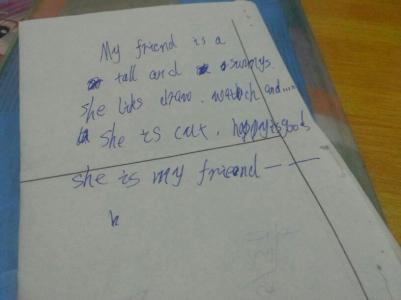 My friend is a
tall and sunnys.
she liks draw. watch and....
she is cut. happy is good
she is my friend — —
h